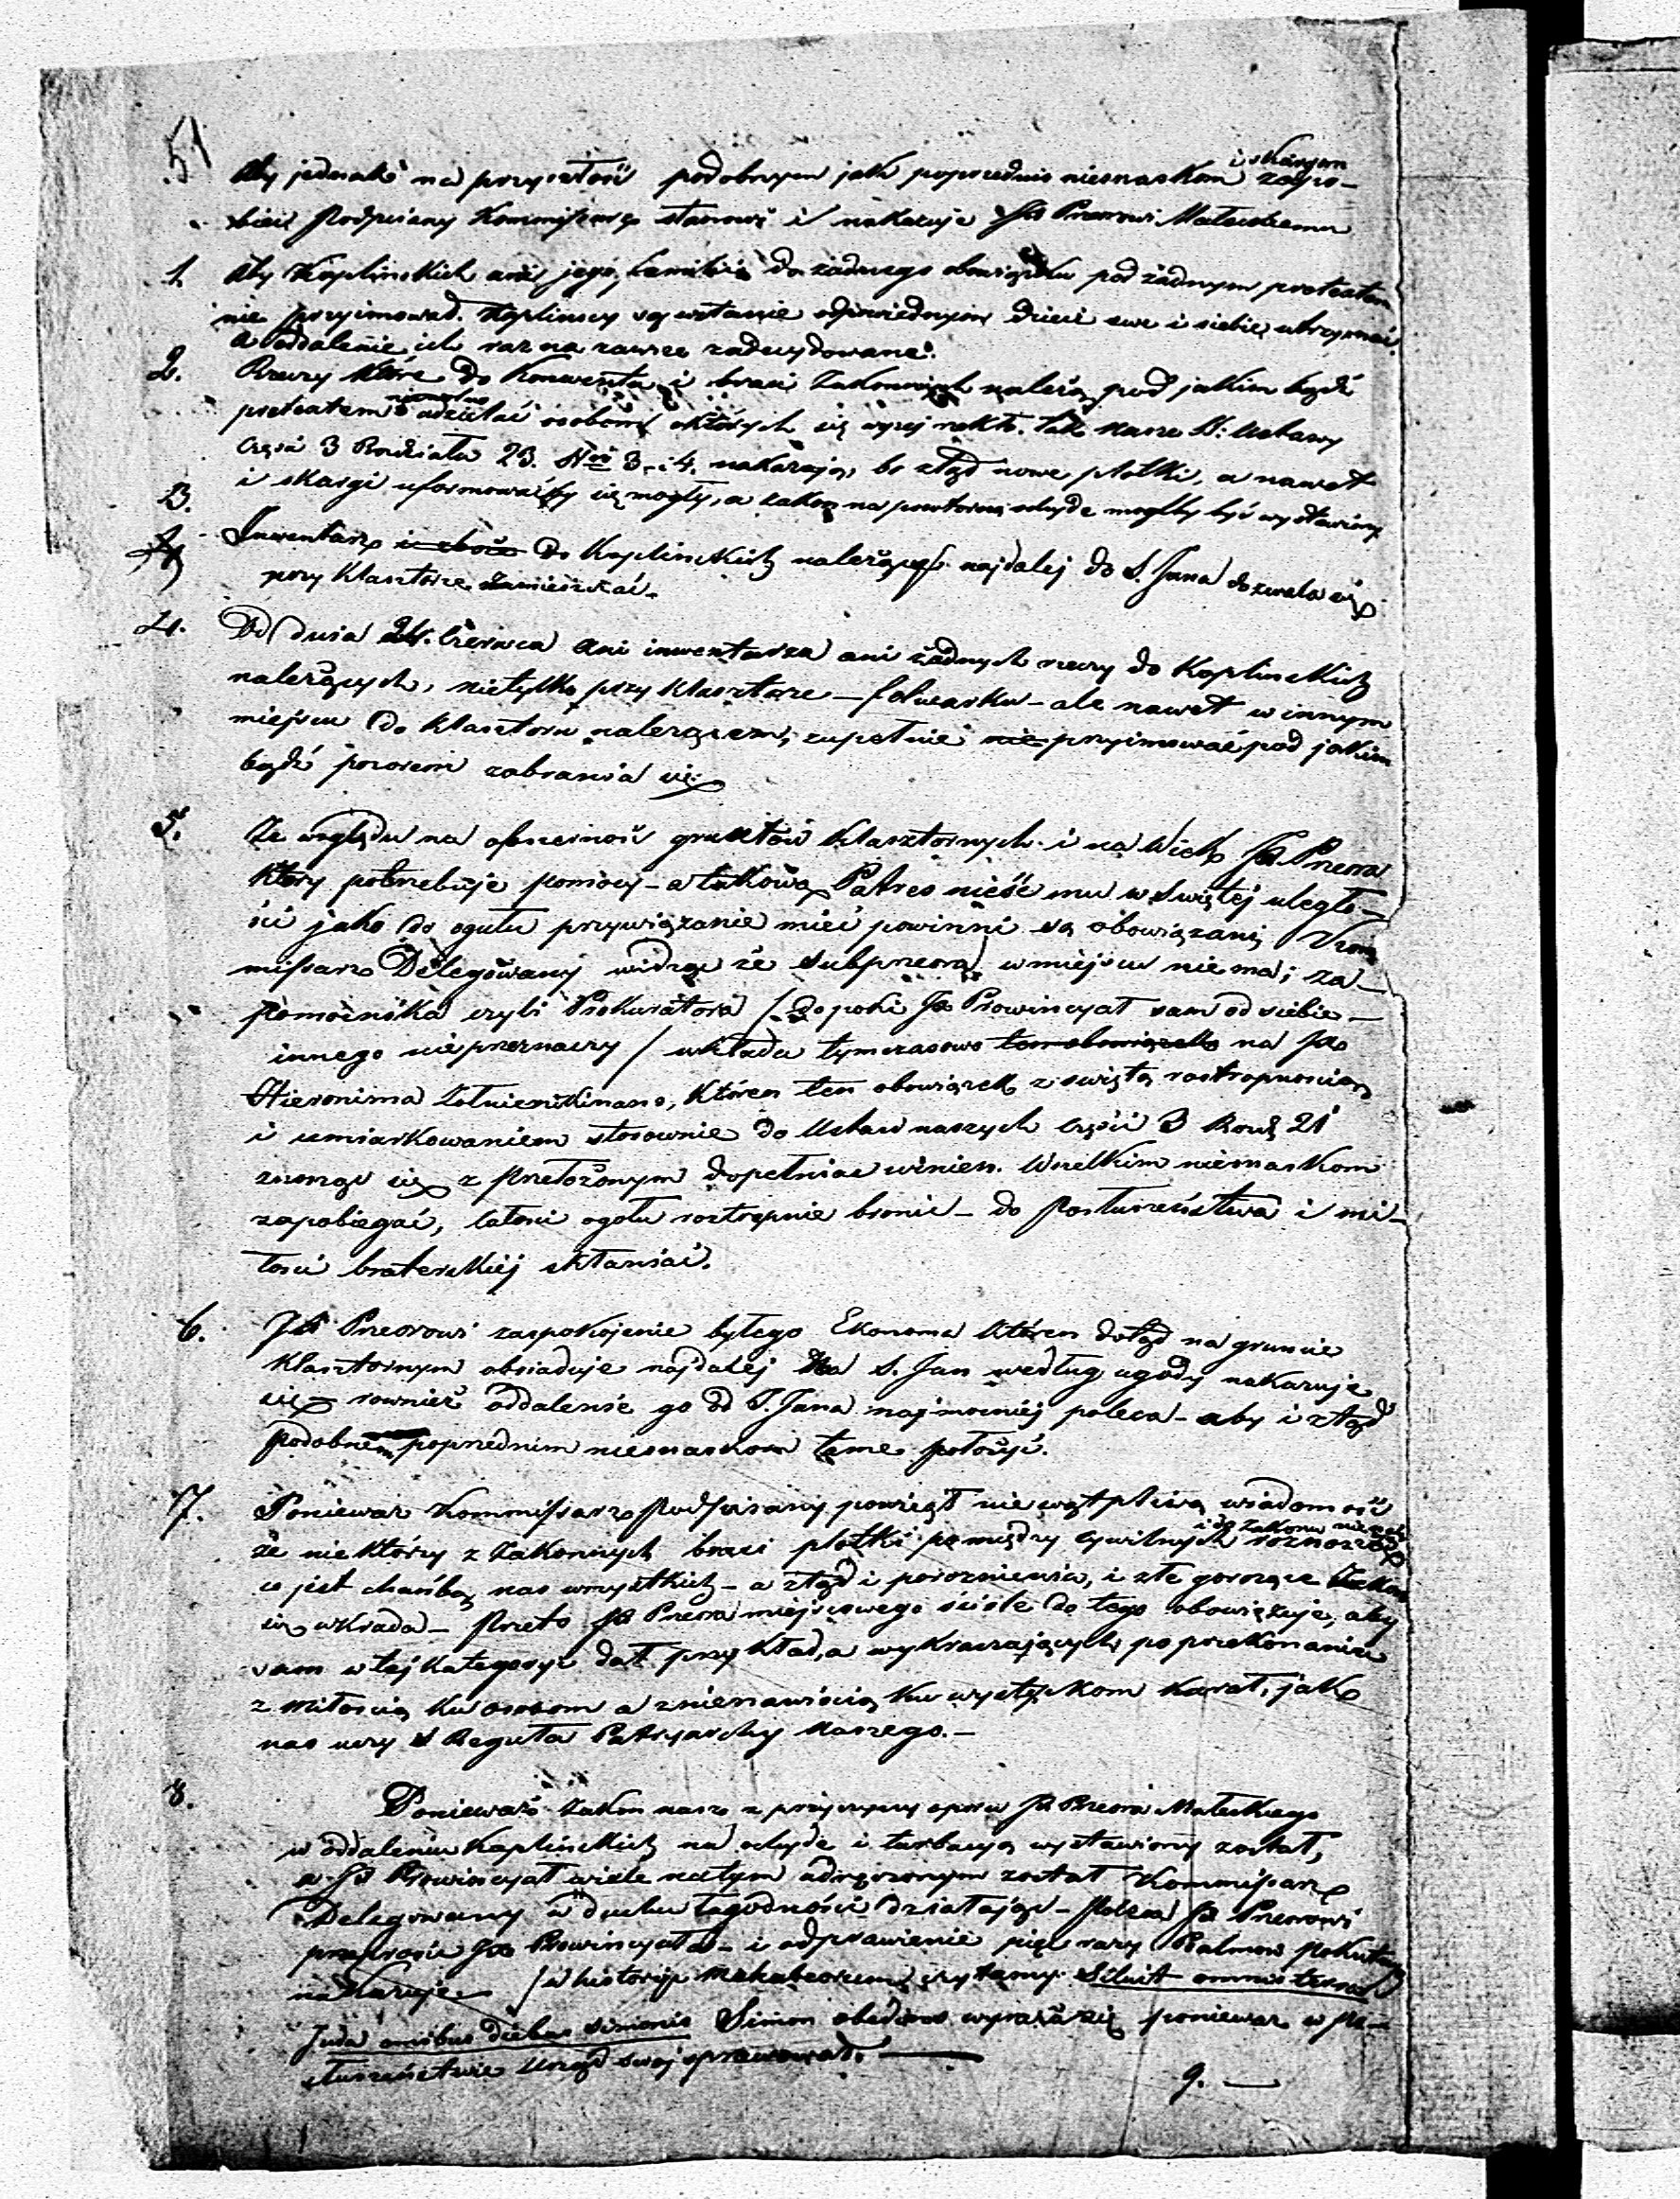 51
Aby jednak na przyszłość podobnym jak poprzednio niesnaskom i skargom zapo-
biedz Podpisany Kommissarz stanowi i nakazuje Jx Przeorowi Małeckiemu
1. Aby Koplinskich ani jego familii do żadnego obowiązku pod żadnym pretextem
nie przyjmował. Koplinscy są wstanie odpowiednym dzieci swe i siebie utrzymać,
a oddalenie ich raz na zawsze zadecydowane.
2. Rzeczy które do Konwentu i braci Zakonnych należą, pod jakim bądź
pretextem udzielać osobom o których się wyżej rzekło. Tak nasze S: Ustawy
Część 3 Rozdziału 23. N 3. i 4. nakazują, bo ztąd nowe plotki, a nawet
i skargi uformowaćby się mogły, a zakon na powtorną ochydę mogłby być wystawiony
3. Inwentarz i zboże do Koplinskich należący najdalej do S. Jana dozwala się
przy Klasztorze zamieszkać.
4. Od dnia 24. Czerwca ani inwentarza ani żadnych rzeczy do Koplinskich
należących, nietylko przy Klasztorze — folwarku — ale nawet w innym
miejscu do Klasztoru należącem, zupełnie nie przyjmować pod jakim
bądź pozorem zabrania się
5. Ze względu na obszerność gruntów Klasztornych i na Wiek Jx Przeora
który potrzebuje pomocy — a takową Patres nieść mu w Swiętej uległo-
ści jako do ogułu przywiązanie mieć powinni są obowiązani Kom
missarz Delegowany widząc że Subprzeora w miejscu niema; za
pomocnika czyli Prokuratora / dopoki Jx Prowincyał sam od siebie
innego nieprzeznaczy / wkłada tymczasowo ten obowiązek na Jx
Hieronima, któren ten obowiązek z swiętą roztropnością
i umiarkowaniem stosownie do Ustaw naszych części 3 Rozdz 21
znosząc się z Przełożonym dopełniać winien. Wszelkim niesnaskom
zapobiegać, całości ogołu roztropnie bronić — do Posłuszeństwa i mi-
łości braterskiej skłaniać.
6. Jx Przeorowi zaspokojenie byłego Ekonoma któren dotąd na gruncie
Klasztornym obsiaduje najdalej na S. Jan według ugody nakazuje
się rownież oddalenie go od S. Jana najmocniej poleca — aby i ztąd
podobnem poprzednim niesnaskom tamę położyć.
7. Ponieważ Kommissarz Podpisany powziął nie wątpliwą wiadomość
że niektórzy z Zakonnych braci plotki pomiędzy cywilnych i do Zakonu roznoszą
co jest chańbą nas wszystkich — a ztąd i poroznienia, i złe gorszące
się wkrada — Przeto Jx Przeora miejscowego ściśle do tego obowiązuje, aby
sam w tej kategoryi dał przykład, a wykraczających po przekonaniu
z miłością ku osobom a znienawiścią ku występkom karał, jak
nas uczy S Reguła Patryarchy naszego. —
8. Ponieważ Zakon nasz z przyczyny oporu Jx Przeora Małeckiego
w oddaleniu Koplinskich na ochydę i turbacyą wystawiony został,
a Jx Prowincyał wiele natym udręczonym został Kommissarz
Delegowany w duchu łagodności działając — poleca Jx Przeorowi
przeprosić Jx Prowincyała — i odprawienie pięć razy Psalmow pokutnych
nakazuje / w historyi Makabeorum czytamy: Siluit omnis terra
Juda omibus diebus Simonis Simon obediens wyraża się ponieważ w po-
słuszeństwie Urząd swoj sprawował. —
9. —